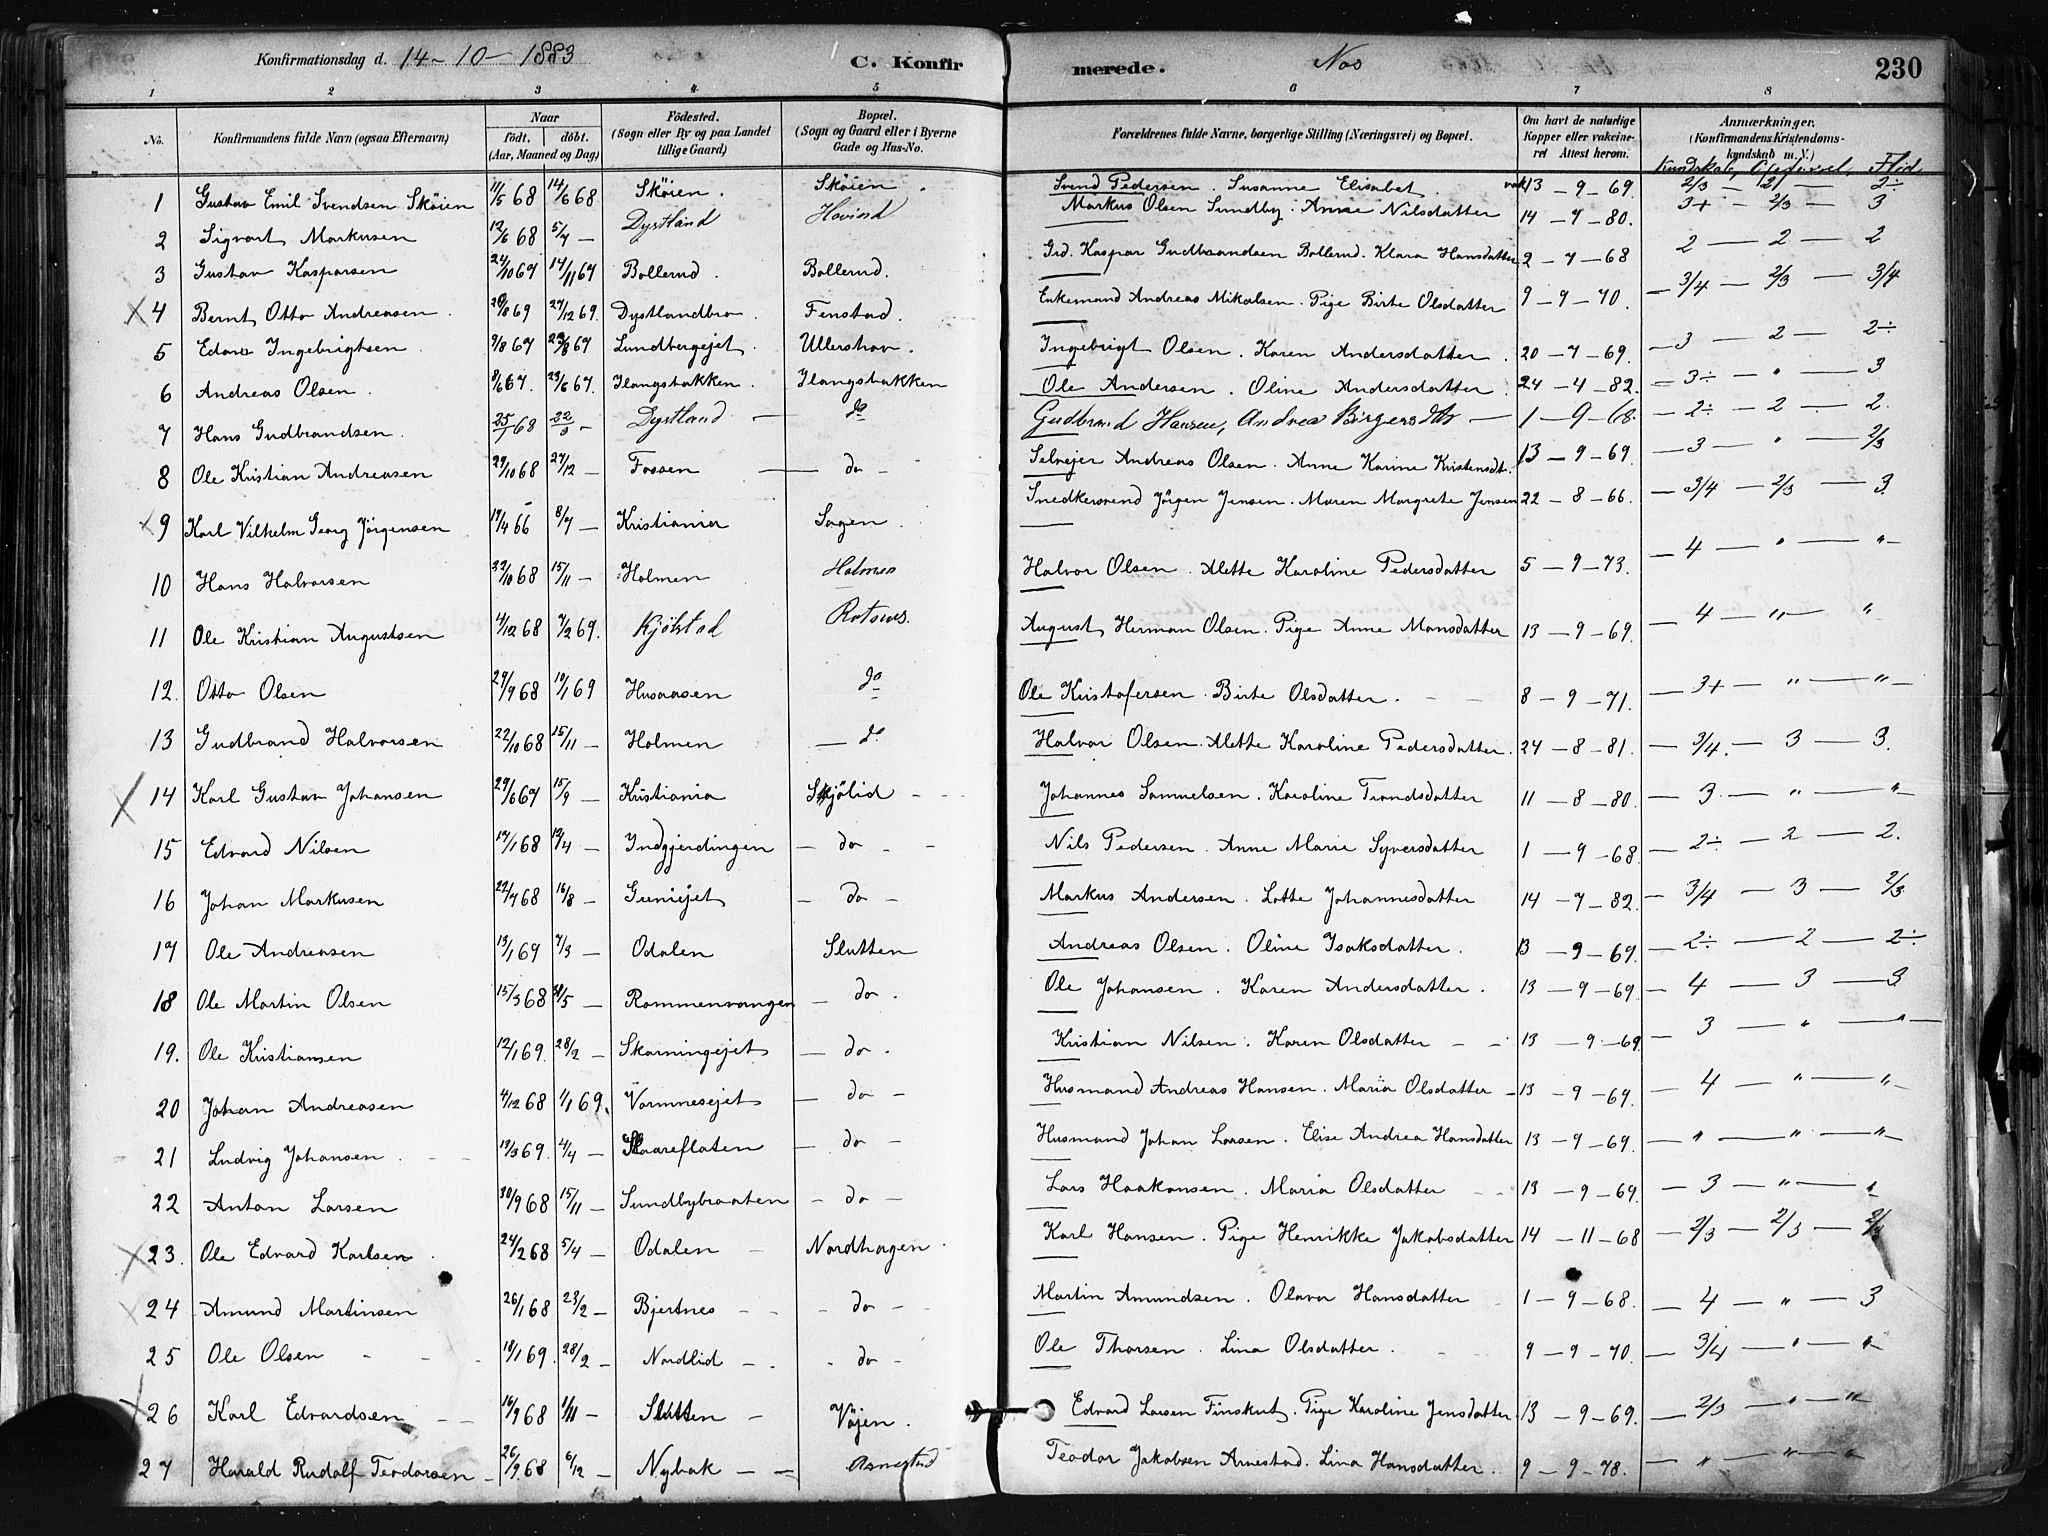 Konfirmationsdag d. 14-10-1883 C. Konfirmerede. Nes 230
1 2 3 4 5 6 7 8
No. Konfirmandens fulde Navn (ogsaa Efternavn) Naar födt. döbt. (Aar, Maaned og Dag) Födested. (Sogn eller By og paa Landet tillige Gaard) Bopæl. (Sogn og Gaard eller i Byerne Gade og Hus-No. Forældrenes fulde Navne, borgerlige Stilling (Næringsvei) og Bopæl. Om havt de naturlige Kopper eller vakcineret Attest herom. Anmærkninger. (Konfirmandens Kristendomskundskab m. V.)
Kundskab, Opførsel, Flid
1 Gustav Emil Svendsen Sköien 11/5 68 14/6 68 Sköien. Sköien. Svend Pedersen. Susanne Elisabet. vak 13-9-69. 2/3 - 2 - 2÷
2 Sigvart Markusen 12/6 68 5/7 - Dystland Hovind Markus Olsen Sundby. Anne Nilsdatter 14-7-80. 3+ - 2/3 - 3
3 Gustav Kasparsen 24/10 67 17/11 67 Bollerud. Bollerud. Grd. Kaspar Gudbrandsen Bollerud. Klara Hansdatter 2-7-68 2 - 2 - 2
4 Bernt Otto Andreasen. 29/8 69 27/12 69. Dystlandbro. Fenstad. Enkemand Andreas Mikalsen. Pige Birte Olsdatter 9-9-70. - 3/4 - 2/3 - 3/4
5 Edvard Ingebrigtsen. 9/8 67 29/8 67 Lundbergejet. Ullershov. Ingebrigt Olsen. Karen Andersdatter. 20-7-69. - 3 - 2 - 2÷
6 Andreas Olsen. 8/6 67. 23/6 67. Ilangsbakken. Ilangsbakken Ole Andersen. Oline Andersdatter. 24-4-82. - 3÷ - " - 3
7 Hans Gudbrandsen. 25/1 68 22/3 - Dystland - do Gudbrand Hansen, Andrea Birgersdtr - 1-9-68. - 2÷ - 2 - 2.
8 Ole Kristian Andreasen 29/10 68 27/12 - Fossen - do - Selvejer Andreas Olsen. Anne Karine Kristensdt. 13-9-69. - 3 - " - 2/3
9 Karl Vilhelm Georg Jörgensen 19/4 66 8/7 - Kristiania Sagen. Snedkersvend Jörgen Jensen. Maren Margrete Jensen 22-8-66. - 3/4 - 2/3 - 3.
10 Hans Halvorsen 22/10 68 15/11 - Holmen Holmen Halvor Olsen. Alette Karoline Pedersdatter 5-9-73. - 4 - " - " -
11 Ole Kristian Augustsen 4/12 68 7/2 69. Kjölstad Rotsnes. August Herman Olsen. Pige Anne Monsdatter 13-9-69. - 4 - " - "
12. Otto Olsen 29/9 68 10/1 69 Husaasen do Ole Kristofersen. Birte Olsdatter. - - 8-9-71. - 3+ - " - " -
13 Gudbrand Halvorsen 22/10 68 15/11 - Holmen - do Halvor Olsen. Alette Karoline Pedersdatter. 24-8-81. - 3/4. - 3 - 3.
14 Karl Gustav Johansen 29/6 67 15/9 - Kristiania Skjölid - - Johannes Samuelsen. Karoline Trondsdatter 11-8-80. - 3 - " - "
15 Edvard Nilsen 19/1 68 12/4 - Indgjerdingen - do - - Nils Pedersen. Anne Marie Syversdatter 1-9-68. - 2÷ - 2 - 2.
16 Johan Markusen 22/7 68 16/8 - Guniejet - do - Markus Andersen. Lotte Johannesdatter 14-7-82. - 3/4 - 3 - 2/3
17 Ole Andreasen 13/1 69 7/3 - Odalen Slutten Andreas Olsen. Oline Isaksdatter. 13-9-69. - 2÷ - 2 - 2÷
18 Ole Martin Olsen 15/3 68 31/5 - Rommenvangen - do. Ole Johansen. Karen Andersdatter. 13-9-69. - 4 - 3 - 3
19. Ole Kristiansen 12/1 69. 28/2 - Skarningejet - do. Kristian Nilsen. Karen Olsdatter - - 13-9-69. - 3 - " - " -
20 Johan Andreasen 4/12 68 1/1 69. Vormnesejet - do - Husmand Andreas Hansen. Maria Olsdatter - 13-9-69. - 4 - " - "
21 Ludvig Johansen. - - 13/3 69. 4/4 - Skaareflaten - do - Husmand Johan Larsen. Elise Andrea Hansdatter 13-9-69. - " - " - "
22 Anton Larsen 30/9 68 15/11 - Sundbybraaten - do - Lars Haakonsen. Maria Olsdatter - - 13-9-69. - 3 - " - "
23. Ole Edvard Karlsen. 24/2 68 5/4 - Odalen - Nordhagen. Karl Hansen. Pige Henrikke Jakobsdatter 14-11-68 - 2/3 - 2/3 - 2/3
24 Amund Martinsen 26/1 68 23/2 - Bjertnes - - - do - Martin Amundsen. Olava Hansdatter - 1-9-68. - 4 - " - 3
25 Ole Olsen - - - 18/1 69. 28/2 - Nordlid - . - do - Ole Thorsen. Lina Olsdatter. - - 9-9-70. - 3/4 - " - "
26 Karl Edvardsen - - 16/9 68 1/11 - Slutten - Vöjen. Edvard Larsen Finskut. Pige Karoline Jensdatter. 13-9-69. - 2/3 - " - "
27 Harald Rudolf Teodorsen - 26/9 68 6/12 - Nybak - - Arnestad Teodor Jakobsen Arnestad. Lina Hansdatter. 9-9-78. - " - " - "